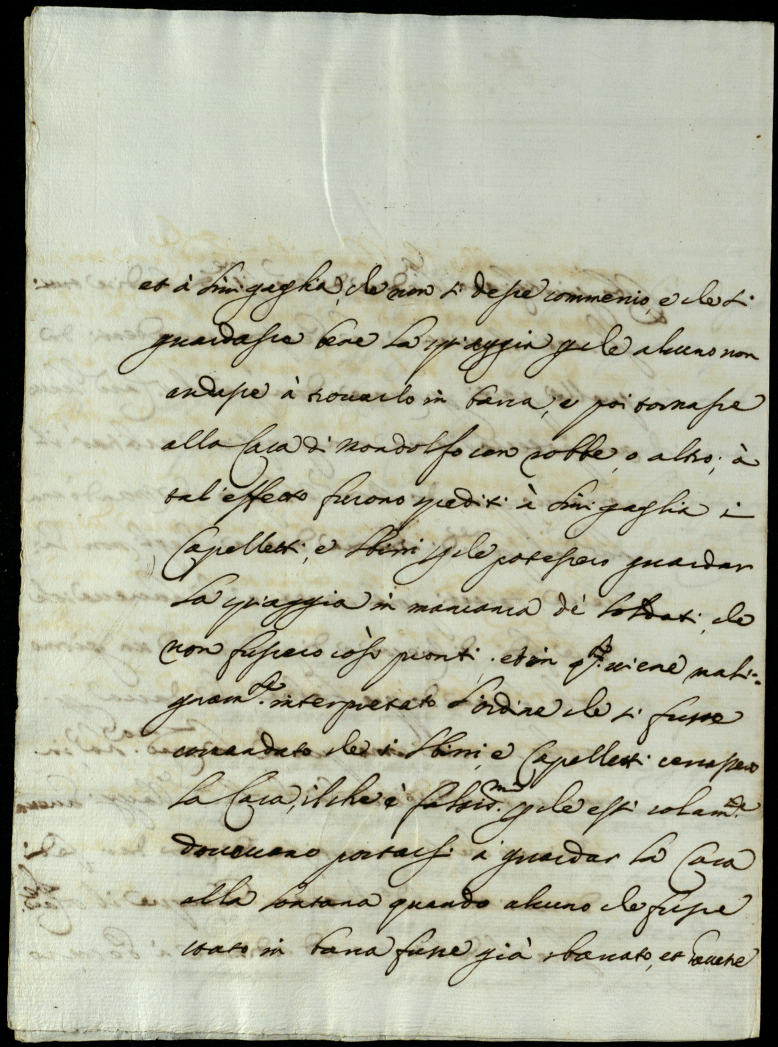 et à Sinigaglia, che non si desse commercio, e che si
guardasse bene la spiaggia p che alcuno non
andasse à trouarlo in barca, e poi tornasse
alla Casa di Mondolfo con robbe, o altro; à
tal'effetto furono spediti à Sinigaglia i
Capelletti, e Sbirri p che potessero guardar
la spiaggia in mancanza de' soldati, che
non fussero così pronti, et in qto. uiene mali=
gnamte. interpretato l'ordine che si fusse
comandato che i Sbirri, e Capelletti cercassero
la Casa, il che è falsismo. p che essi solamte.
doueuano portarsi à guardar la Casa
alla lontana quando alcuno che fusse
stato in barca fusse già sbarcato, et hauesse